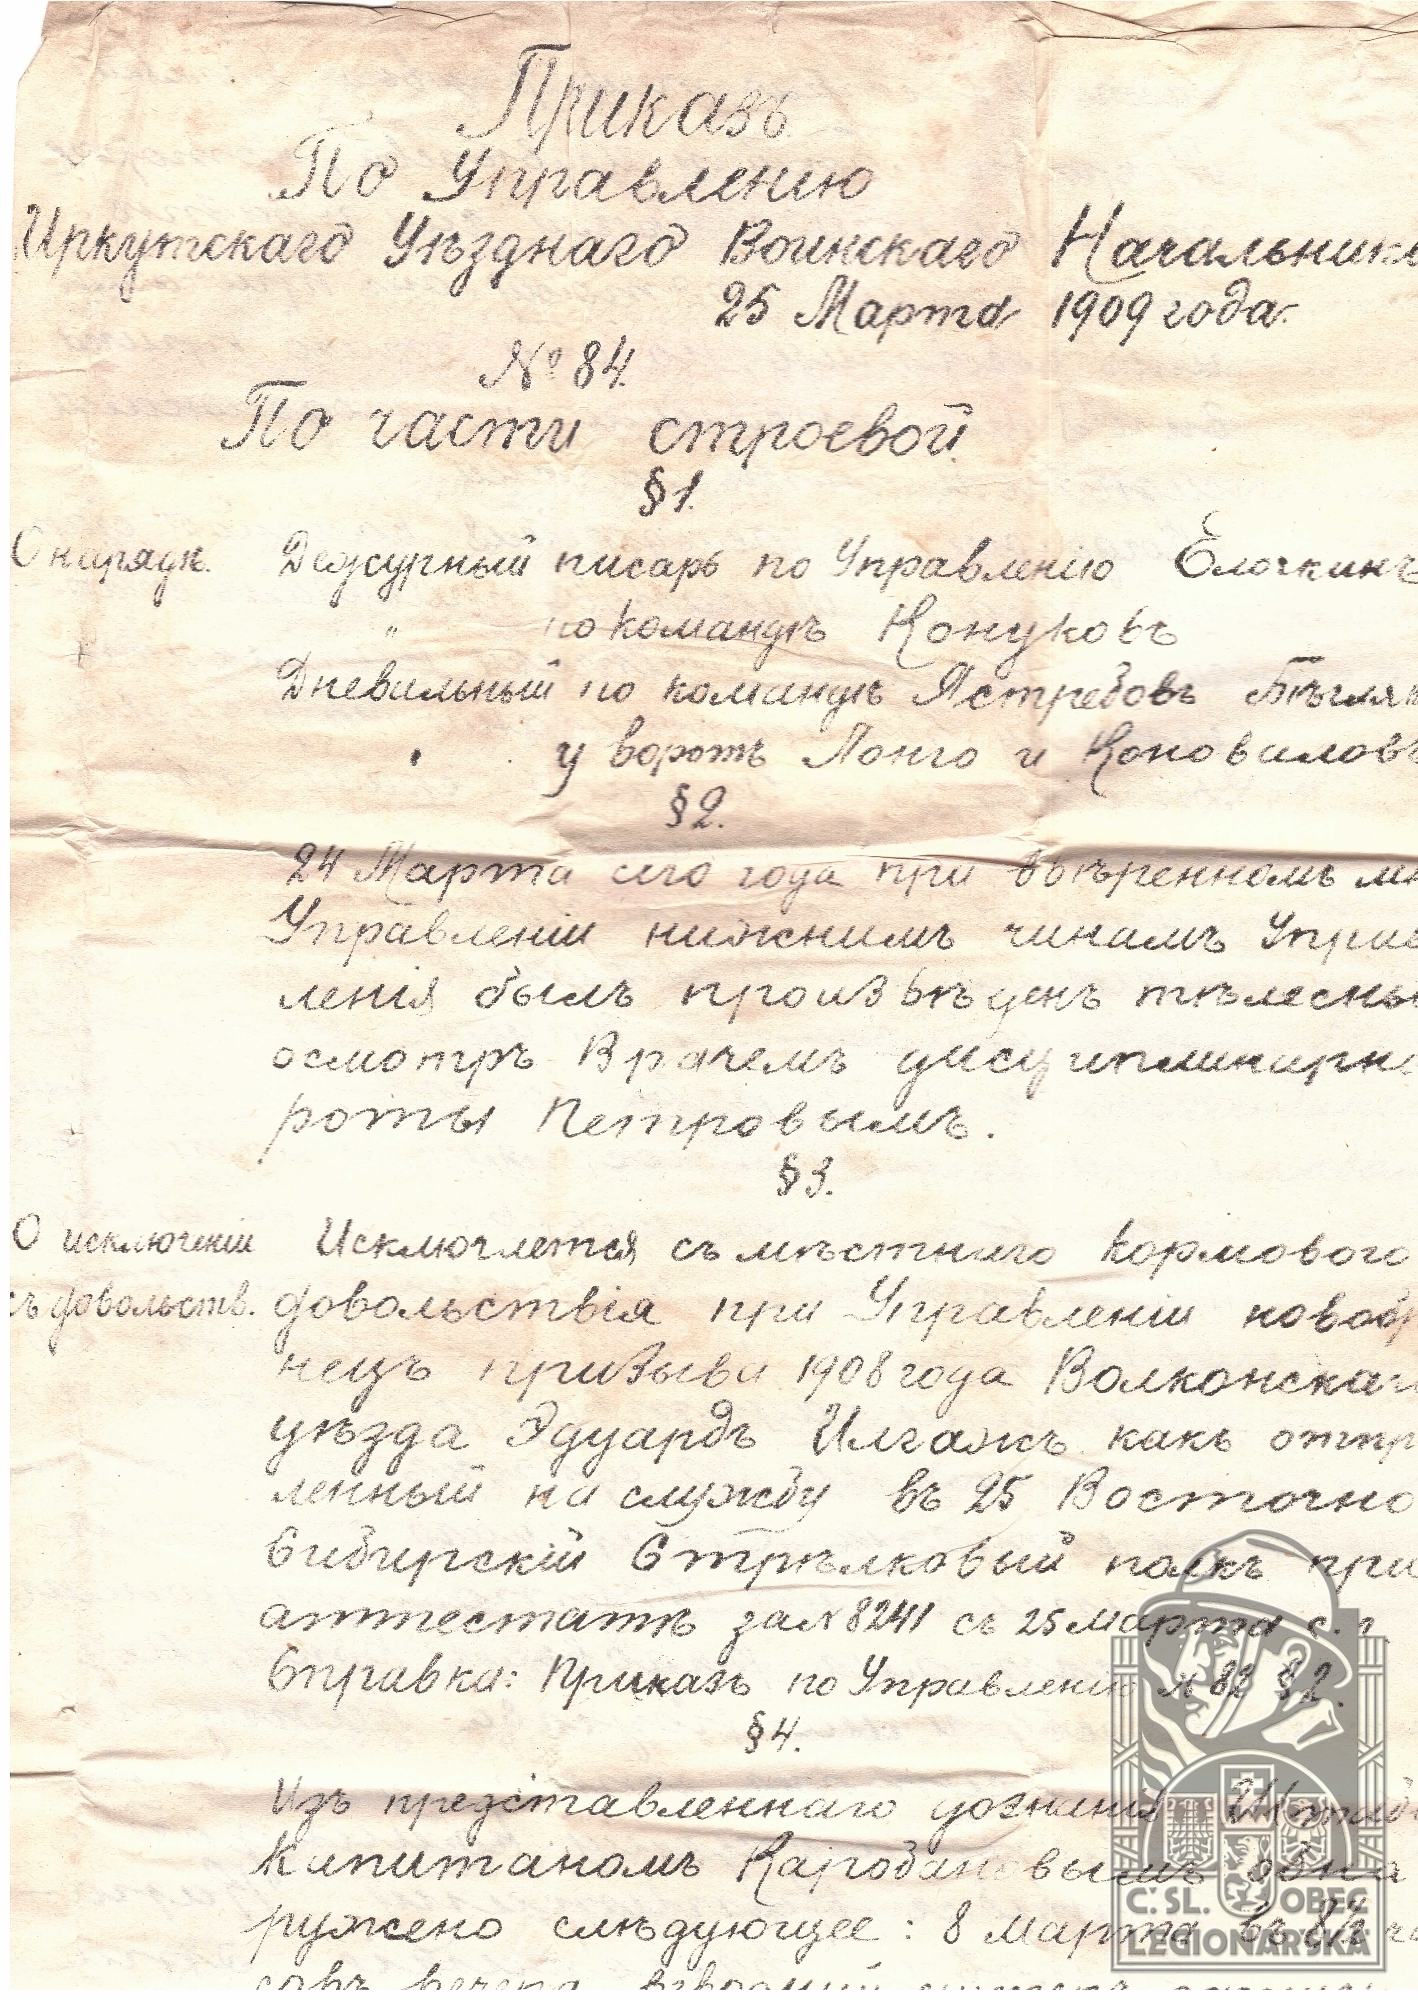 Приказъ
По Управленію
Иркутскаго Уѣзднаго Воинскаго Начальника
25 Марта 1909 года.
№ 84.
По части строевой.
§ 1.
О нарядѣ. Дежурный писарь по Управленію Елочкинъ
" по командѣ Конуковъ
Дневальный по командѣ Ястребовъ
у воротъ Лонго и Коноваловъ
§ 2.
24 Марта сего года при ввѣренномъ
Управленіи нижнимъ чинамъ Управ
ленія былъ произвѣденъ тѣлесны
осмотръ Врачемъ дисциплинарно
роты Петровымъ.
§ 3.
О исключеніи Исключается съ мѣстнаго кормового
съ довольств. довольствія при Управленіи новобр
нецъ призыва 1908 года Волконскаго
уѣзда Эдуардъ Илгажъ какъ отпр
ленный на службу въ 25 Восточно
Сибирскій Стрѣлковый полкъ при
аттестатѣ за № 8241 съ 25 марта с. г.
Справка: Приказъ по Управленію № 82 § 2.
§ 4.
Изъ представленнаго дознанія Штабъ
Капитаномъ обна
ружено слѣдующее: 8 марта въ 8½ ча
совъ вечера
Č. SL. OBEC
LEGIONÁŘSKÁ